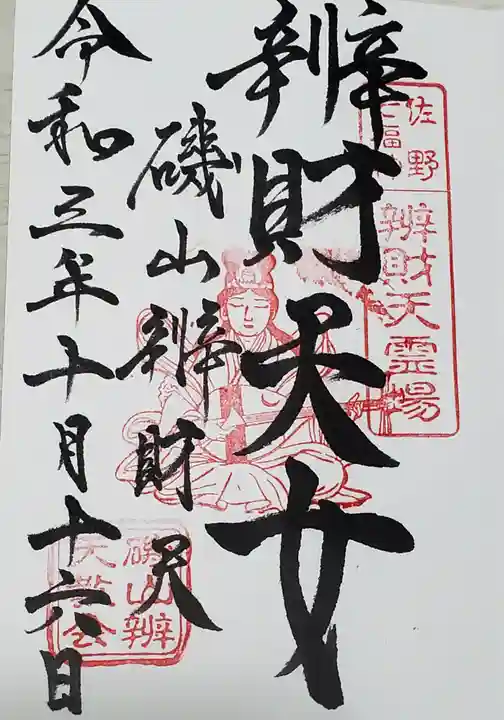 佐野
七福
辨財天霊場
辨財天女
磯山辨財天
令和三年十月十六日
磯山辨
天
会